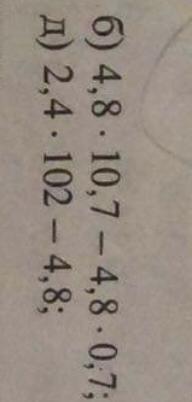 б) 4,8 · 10,7 – 4,8 · 0,7;
д) 2,4 · 102 – 4,8;